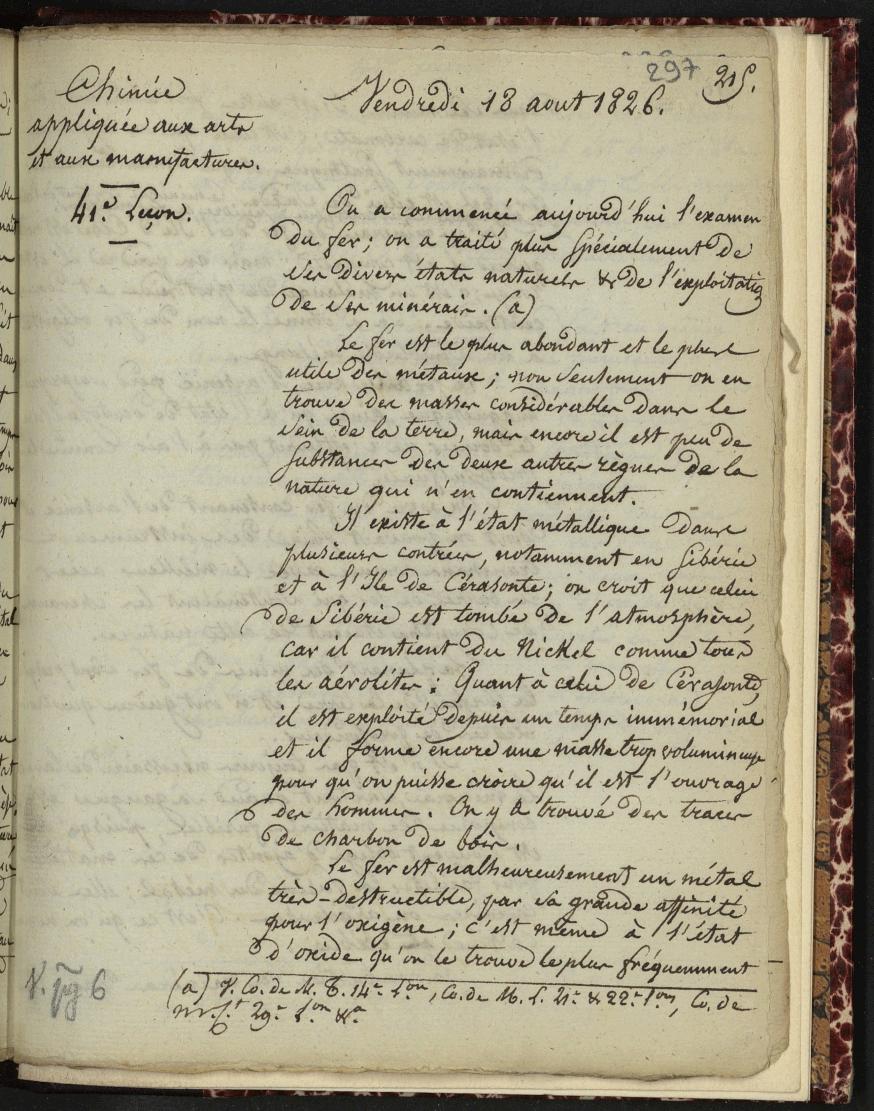 297 215.
Chimie
appliquée aux arts
et aux manufactures.
41e. Leçon.
Vendredi 18 aout 1826.
On a commencé aujourd'hui l'examen
du fer; on a traité plus spécialement de
ses divers états naturels & de l'exploitatio
de ses minérais. (a)
Le fer est le plus abondant et le plus
utile des métaux; non seulement on en
trouve des masses considérables dans le
sein de la terre, mais encore il est peu de
substances des deux autres règnes de la
nature qui n'en contiennent.
Il existe à l'état métallique dans
plusieurs contrées, notamment en Sibérie
et à l'Ile de Cérasonte; on croit que celui
de Sibérie est tombé de l'atmosphère,
car il contient du Nickel comme tous
les aérolites: Quant à celui de Cérasonte,
il est exploité depuis un temps immémorial
et il forme encore une masse trop volumineuse
pour qu'on puisse croire qu'il est l'ouvrage
des hommes. On y a trouvé des traces
de charbon de bois.
Le fer est malheureusement un métal
très-destructible, par sa grande affinité
pour l'oxigène; c'est même à l'état
d'oxide qu'on le trouve le plus fréquemment
(a) V. Co. de M. T. 14e Lon, Co. de M. L. 21e & 22e Lons, Co. de
29e Lon &a
V. pg 6